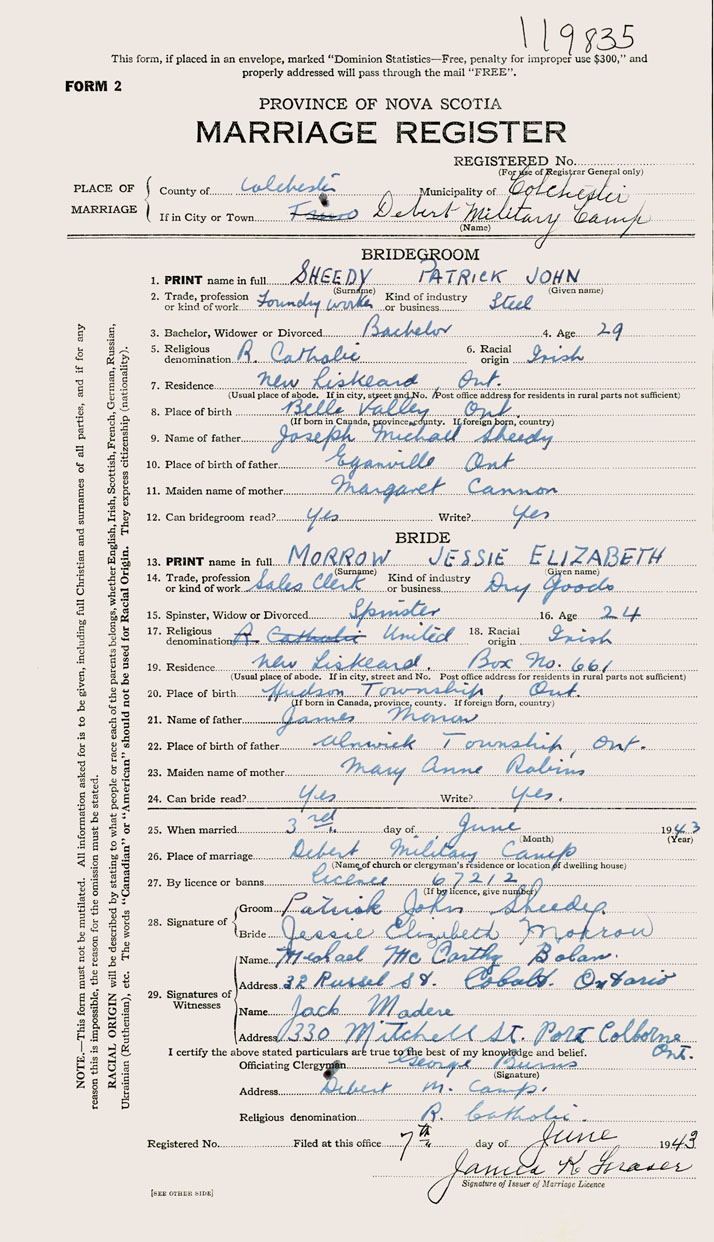 119835
This form, if placed in an envelope, marked "Dominion Statistics—Free, penalty for improper use $300," and
properly addressed will pass through the mail "FREE".
FORM 2
PROVINCE OF NOVA SCOTIA
MARRIAGE REGISTER
REGISTERED No.
(For use of Registrar General only)
PLACE OF MARRIAGE
County of Colchester Municipality of Colchester
If in City or Town Truro Debert Military Camp
(Name)
BRIDEGROOM
1. PRINT name in full SHEEDY PATRICK JOHN
(Surname) (Given name)
2. Trade, profession or kind of work Foundry worker Kind of industry or business Steel
3. Bachelor, Widower or Divorced Bachelor 4. Age 29
5. Religious denomination R. Catholic 6. Racial origin Irish
7. Residence New Liskeard, Ont.
(Usual place of abode. If in city, street and No. Post office address for residents in rural parts not sufficient)
8. Place of birth Belle Valley Ont.
(If born in Canada, province, county. If foreign born, country)
9. Name of father Joseph Michael Sheedy
10. Place of birth of father Eganville Ont
11. Maiden name of mother Margaret Cannon
12. Can bridegroom read? yes Write? yes
BRIDE
13. PRINT name in full MORROW JESSIE ELIZABETH
(Surname) (Given name)
14. Trade, profession or kind of work Sales Clerk Kind of industry or business Dry Goods
15. Spinster, Widow or Divorced Spinster 16. Age 24
17. Religious denomination R Catholic United 18. Racial origin Irish
19. Residence New Liskeard. Box No. 661
(Usual place of abode. If in city, street and No. Post office address for residents in rural parts not sufficient)
20. Place of birth Hudson Township, Ont.
(If born in Canada, province, county. If foreign born, country)
21. Name of father James Morrow
22. Place of birth of father Alnwick Township, Ont.
23. Maiden name of mother Mary Anne Robins
24. Can bride read? yes Write? yes.
25. When married 3rd day of June 1943
(Month) (Year)
26. Place of marriage Debert Military Camp
(Name of church or clergyman's residence or location of dwelling house)
27. By licence or banns licence 67212
(If by licence, give number)
28. Signature of
Groom Patrick John Sheedy
Bride Jessie Elizabeth Morrow
29. Signatures of Witnesses
Name Michael McCarthy Bolan.
Address 32 Russel St. Cobalt. Ontario
Name Jack Madere
Address 330 Mitchell St. Port Colborne Ont.
I certify the above stated particulars are true to the best of my knowledge and belief.
Officiating Clergyman George Burns
(Signature)
Address Debert M. Camp.
Religious denomination R. Catholic.
Registered No. Filed at this office 7th day of June 1943
James K. Fraser
Signature of Issuer of Marriage Licence
[SEE OTHER SIDE]
NOTE.—This form must not be mutilated. All information asked for is to be given, including full Christian and surnames of all parties, and if for any
reason this is impossible, the reason for the omission must be stated.
RACIAL ORIGIN will be described by stating to what people or race each of the parents belongs, whether English, Irish, Scottish, French, German, Russian,
Ukrainian (Ruthenian), etc. The words "Canadian" or "American" should not be used for Racial Origin. They express citizenship (nationality).